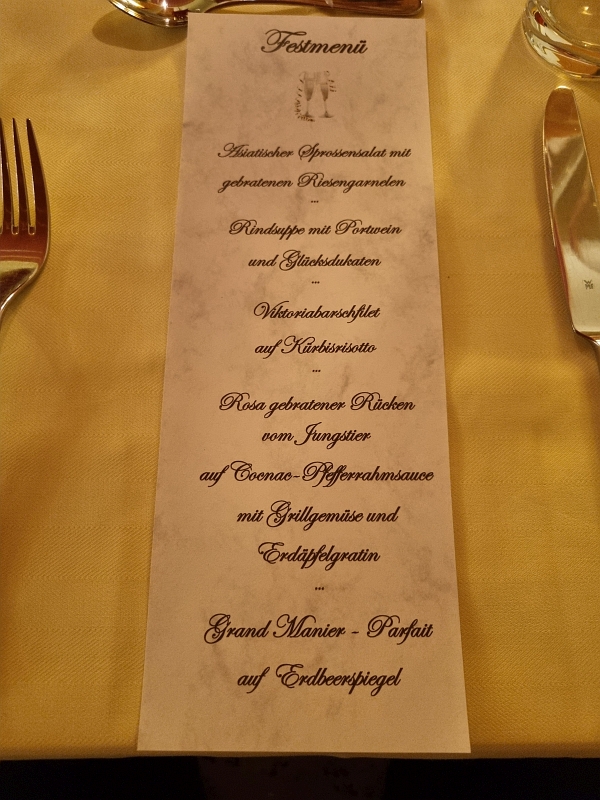 Festmenü
Asiatischer Sprossensalat mit
gebratenen Riesengarnelen
...
Rindsuppe mit Portwein
und Glücksdukaten
...
Viktoriabarschfilet
auf Kürbisrisotto
...
Rosa gebratener Rücken
vom Jungstier
auf Cocnac-Pfefferrahmsauce
mit Grillgemüse und
Erdäpfelgratin
...
Grand Manier - Parfait
auf Erdbeerspiegel
WMF